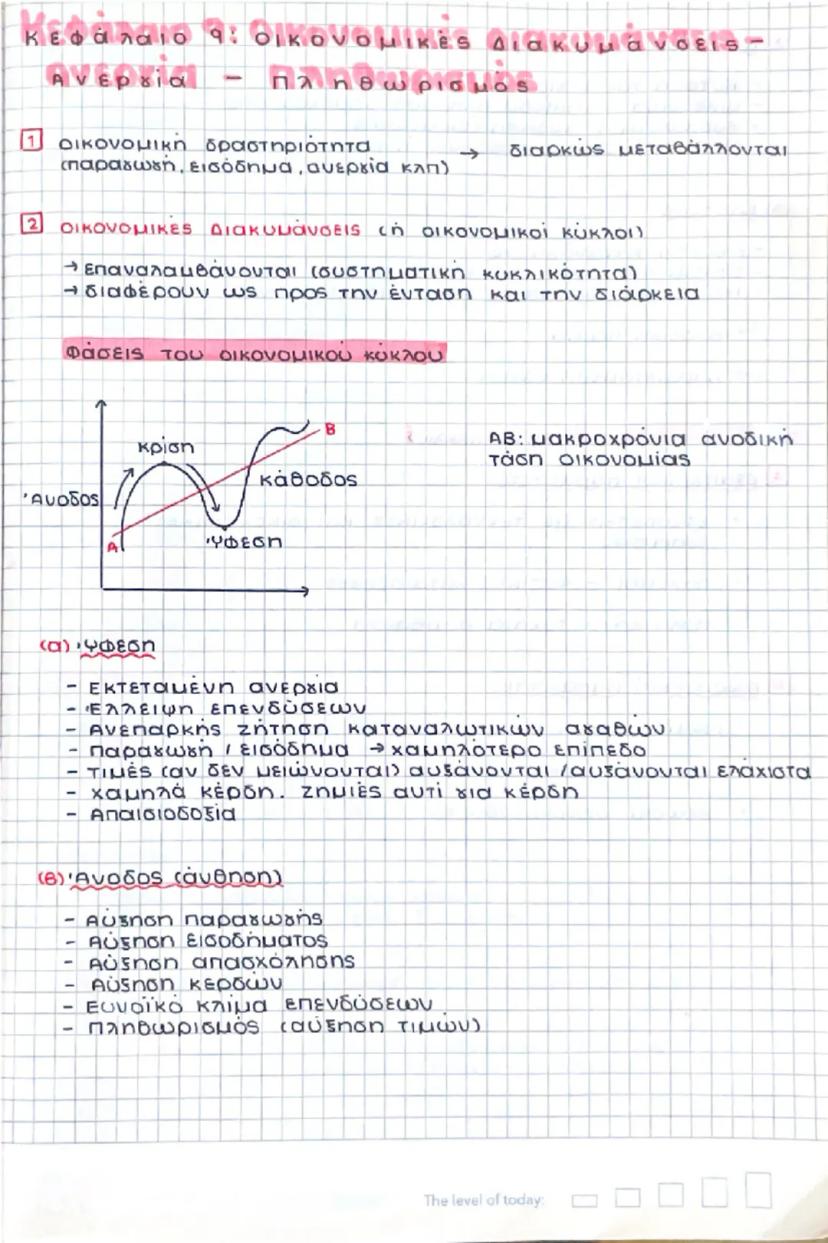 Κεφάλαιο 9: Οικονομικές Διακυμάνσεις -
Ανεργία - Πληθωρισμός
1 Οικονομική δραστηριότητα → διαρκώς μεταβάλλονται
(παραγωγή, εισόδημα, ανεργία κλπ)
2 Οικονομικές Διακυμάνσεις (ή οικονομικοί κύκλοι)
→ επαναλαμβάνονται (συστηματική κυκλικότητα)
→ διαφέρουν ως προς την ένταση και την διάρκεια
Φάσεις του οικονομικού κύκλου
Β
κρίση
ΑΒ: μακροχρόνια ανοδική
τάση οικονομίας
κάθοδος
Άνοδος
Α
Ύφεση
(α) Ύφεση
- Εκτεταμένη ανεργία
- Έλλειψη επενδύσεων
- Ανεπαρκής ζήτηση καταναλωτικών αγαθών
- Παραγωγή / εισόδημα → χαμηλότερο επίπεδο
- Τιμές (αν δεν μειώνονται) αυξάνονται / αυξάνονται ελάχιστα
- Χαμηλά κέρδη. Ζημιές αντί για κέρδη
- Απαισιοδοξία
(β) Άνοδος (άνθηση)
- Αύξηση παραγωγής
- Αύξηση εισοδήματος
- Αύξηση απασχόλησης
- Αύξηση κερδών
- Ευνοϊκό κλίμα επενδύσεων
- Πληθωρισμός (αύξηση τιμών)
The level of today: